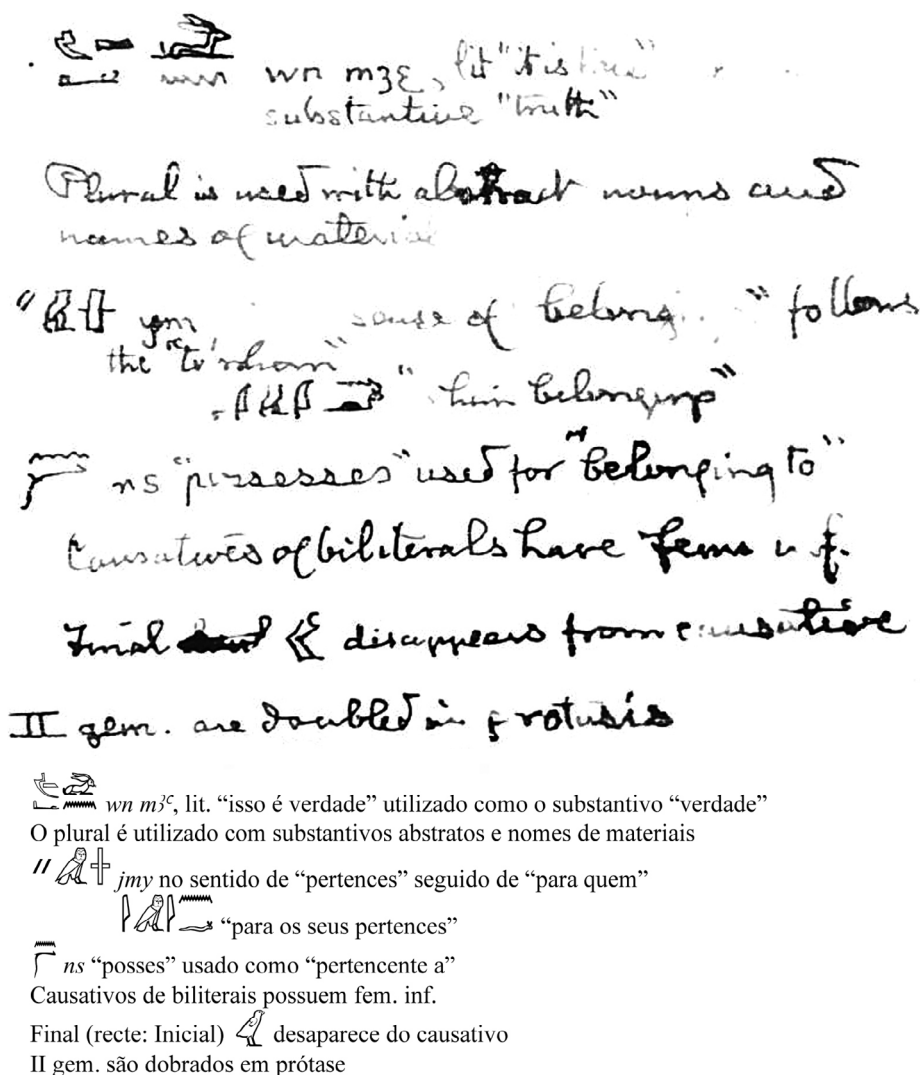 wn mꜣꜥ, lit "it is true"
substantive "truth"
Plural is used with abstract nouns and
names of material
sense of belong " follows
the "to whom"
" him belonging"
ns "possesses" used for "belonging to"
Causatives of biliterals have fem f.
Final disappears from causative
II gem. are doubled in protasis
wn mꜣꜥ, lit. “isso é verdade” utilizado como o substantivo “verdade”
O plural é utilizado com substantivos abstratos e nomes de materiais
jmy no sentido de “pertences” seguido de “para quem”
“para os seus pertences”
ns “posses” usado como “pertencente a”
Causativos de biliterais possuem fem. inf.
Final (recte: Inicial) desaparece do causativo
II gem. são dobrados em prótase